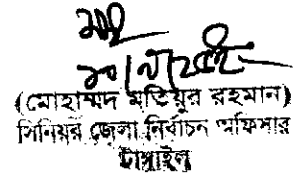 (মোহাম্মদ মতিয়ুর রহমান)
সিনিয়র জেলা নির্বাচন অফিসার
টাঙ্গাইল